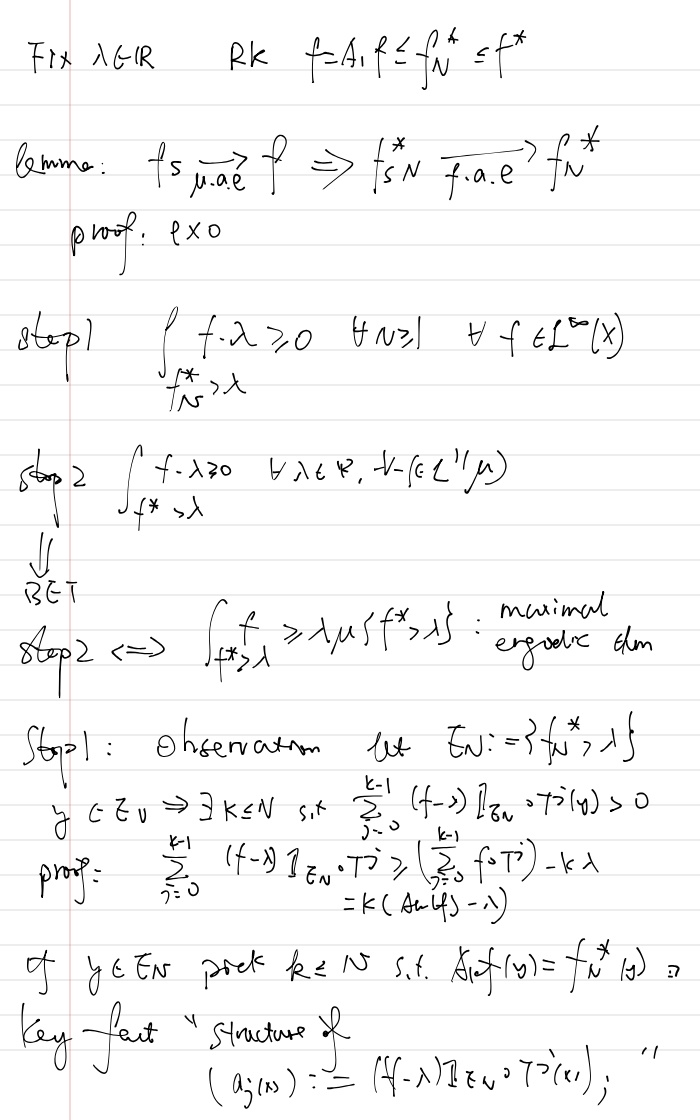 Fix λ∈ℝ RK f=A₁f ≤ f_N^* ≤ f^*
lemma: f_s →_{μ.a.e} f ⇒ f_{sN}^* →_{f.a.e} f_N^*
proof: exo
step1 ∫_{f_N^*>λ} f-λ ≥0 ∀N≥1 ∀ f∈L^∞(X)
step2 ∫_{f^*>λ} f-λ≥0 ∀λ∈ℝ, ∀f∈L¹(μ)
⇓
BET
step2 <=> ∫_{f^*>λ} f ≥ λμ{f^*>λ} : maximal
ergodic thm
Step1: Observation let E_N:={f_N^*>λ}
y∈E_N ⇒ ∃k≤N s.t ∑_{j=0}^{k-1} (f-λ)𝟙_{E_N}∘T^j(y)>0
proof: ∑_{j=0}^{k-1} (f-λ)𝟙_{E_N}∘T^j ≥ (∑_{j=0}^{k-1} f∘T^j) - kλ
=k( (f)-λ)
If y∈E_N pick k≤N s.t. A_kf(y)=f_N^*(y)
Key fact "structure of
(a_j(x)):=(f-λ)𝟙_{E_N}∘T^j(x); "